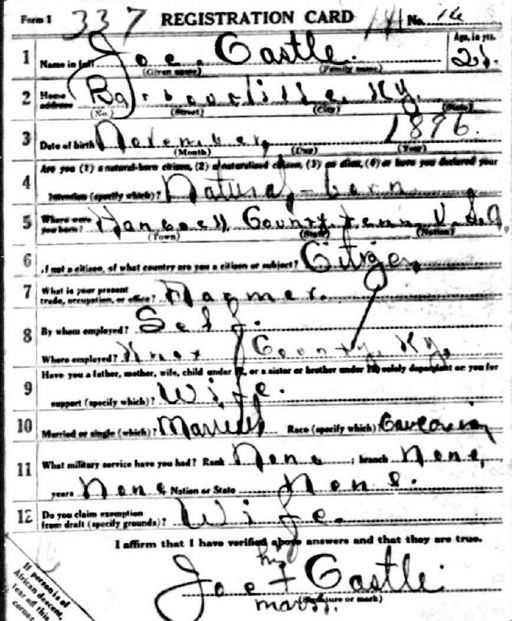 Form 1 337 REGISTRATION CARD No. 16
1 Name in full Joe. Castle. Age, in yrs. 21.
(Given name) (Family name)
2 Home address Barbourville, Ky.
(No.) (Street) (City) (State)
3 Date of birth November, 1896.
(Month) (Day) (Year)
Are you (1) a natural-born citizen, (2) a naturalized citizen, (3) an alien, (4) or have you declared your
4 intention (specify which)? Natural-born
5 Where were you born? Hancock County, Tenn. U.S.A,
(Town) (State) (Nation)
6 If not a citizen, of what country are you a citizen or subject? Citizen
7 What is your present trade, occupation, or office? Farmer.
8 By whom employed? Self.
Where employed? Knox County, Ky,
9 Have you a father, mother, wife, child under 12, or a sister or brother under 12, solely dependent on you for
support (specify which)? Wife.
10 Married or single (which)? Married Race (specify which) Caucasian
11 What military service have you had? Rank None ; branch None,
years None ; Nation or State None.
12 Do you claim exemption from draft (specify grounds)? Wife.
I affirm that I have verified above answers and that they are true.
his
Joe + Castle.
(Signature or mark)
mark.
If person is of
African descent,
tear off this
corner